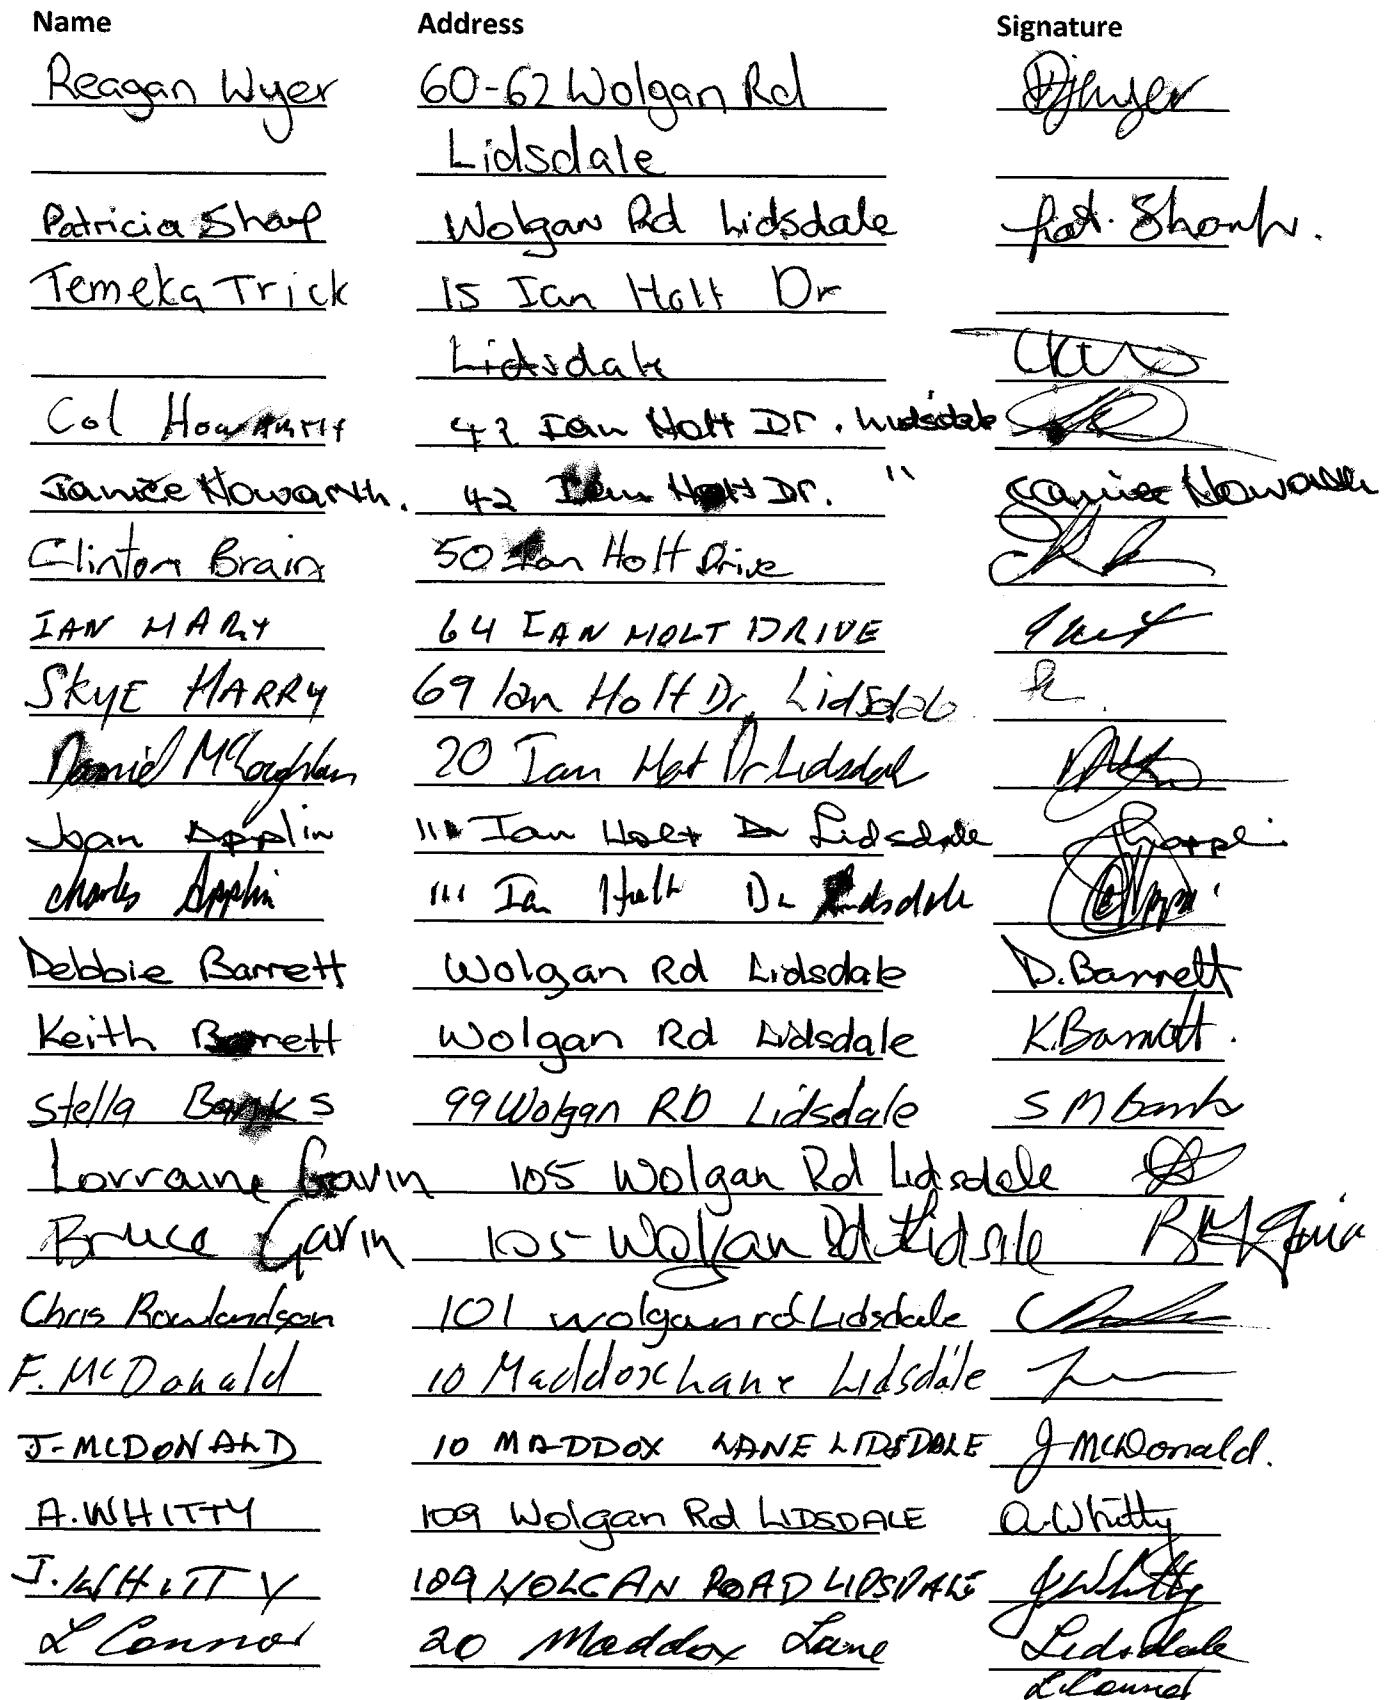 Name Address Signature
Reagan Wyer 60-62 Wolgan Rd
Lidsdale
Patricia Sharp Wolgan Rd Lidsdale Pat. Sharp.
Temeka Trick 15 Ian Holt Dr
Lidsdale
Col Howarth 42 Ian Holt Dr. Lidsdale
Janice Howarth. 42 Ian Holt Dr. " Janice Howarth
Clinton Brain 50 Ian Holt Drive
IAN HARY 64 IAN HOLT DRIVE
SKYE HARRY 69 Ian Holt Dr, Lidsdale
Daniel McLoughlan 20 Ian Holt Dr Lidsdale
Joan Applin 111 Ian Holt Dr Lidsdale
Charles Applin 111 Ian Holt Dr Lidsdale
Debbie Barrett Wolgan Rd Lidsdale D.Barrett
Keith Barrett Wolgan Rd Lidsdale K.Barrett.
Stella Banks 99 Wolgan RD Lidsdale S M Banks
Lorraine Gavin 105 Wolgan Rd Lidsdale
Bruce Gavin 105 Wolgan Rd Lidsdale
Chris Rowlandson 101 wolgan rd Lidsdale
F. McDonald 10 Maddox Lane Lidsdale
J. MCDONALD 10 MADDOX LANE LIDSDALE J McDonald.
A. WHITTY 109 Wolgan Rd LIDSDALE A. Whitty
J. WHITTY 109 WOLGAN ROAD LIDSDALE J Whitty
L Connor 20 Maddox Lane Lidsdale
L. Connor